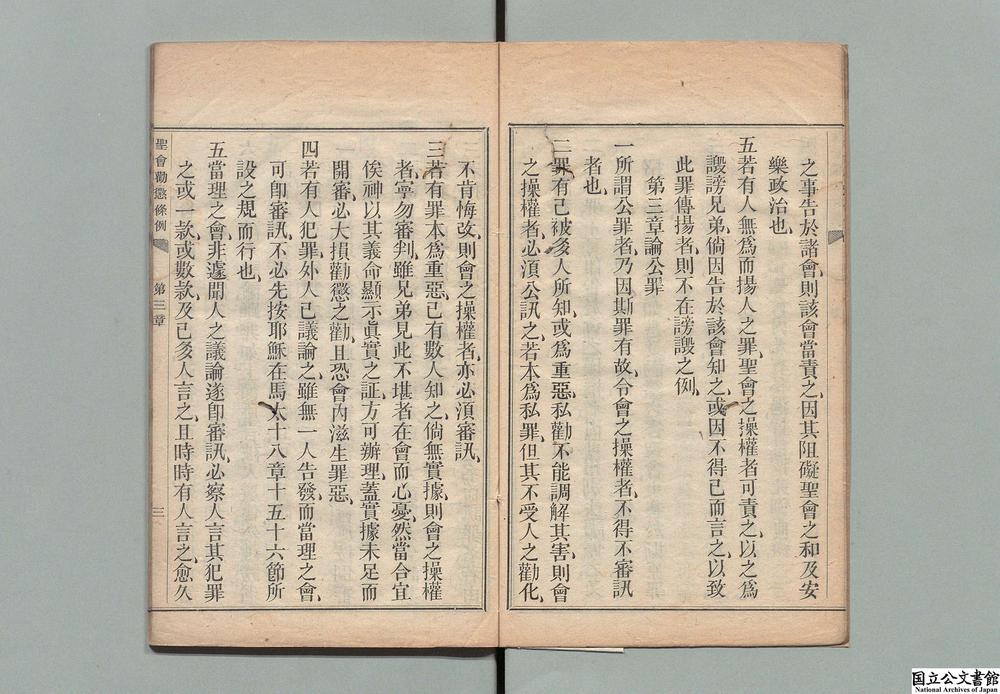 之事告於諸會則該會當責之、因其阻礙聖會之和及安
樂政治也、
五若有人無爲而揚人之罪、聖會之操權者可責之、以之爲
譭謗兄弟、倘因告於該會知之、或因不得已而言之、以致
此罪傳揚者、則不在謗譭之例、
第三章論公罪
一所謂公罪者、乃因斯罪有故、令會之操權者、不得不審訊
者也、
二罪有已被多人所知、或爲重惡、私勸不能調解其害、則會
之操權者必須公訊之、若本爲私罪、但其不受人之勸化、
不肯悔改、則會之操權者、亦必須審訊、
三若有罪本爲重惡、己有數人知之、倘無實據、則會之操權
者、寧勿審判、雖兄弟見此不堪者在會而心憂、然當合宜
俟神以其義命顯示眞實之証、方可辦理、蓋實據未足而
開審、必大損勸懲之勸、且恐會內滋生罪惡、
四若有人犯罪、外人己議論之、雖無一人告發、而當理之會、
可卽審訊、不必先按耶穌在馬太十八章十五十六節所
設之規而行也、
五當理之會、非遽聞人之議論、遂卽審訊、必察人言其犯罪
之或一款、或數款、及己多人言之、且時時有人言之、愈久
聖會勸懲條例
第三章
三
国立公文書館
National Archives of Japan